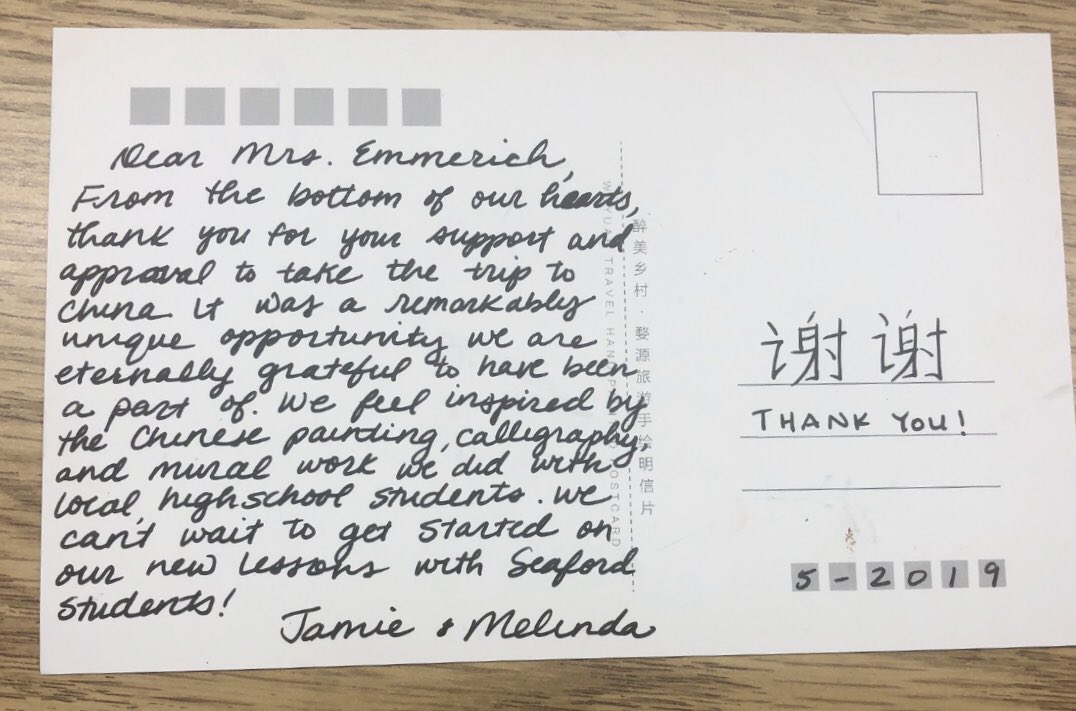 Dear Mrs. Emmerich,
From the bottom of our hearts,
thank you for your support and
approval to take the trip to
China. It was a remarkably
unique opportunity we are
eternally grateful to have been
a part of. We feel inspired by
the Chinese painting, calligraphy,
and mural work we did with
local highschool students. We
can't wait to get started on
our new lessons with Seaford
students!
Jamie & Melinda
醉美乡村 · 婺源旅游手绘明信片
TRAVEL HAND POSTCARD
谢谢
THANK YOU!
5-2019